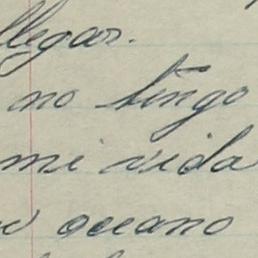 llegar.
no tengo
mi vida
oceano